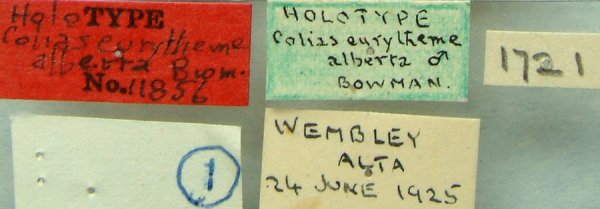 Holo TYPE
Colias eurytheme
alberta Bowm.
No. 11856
HOLOTYPE
Colias eurytheme
alberta ♂
BOWMAN.
1721
1
WEMBLEY
ALTA
24 JUNE 1925